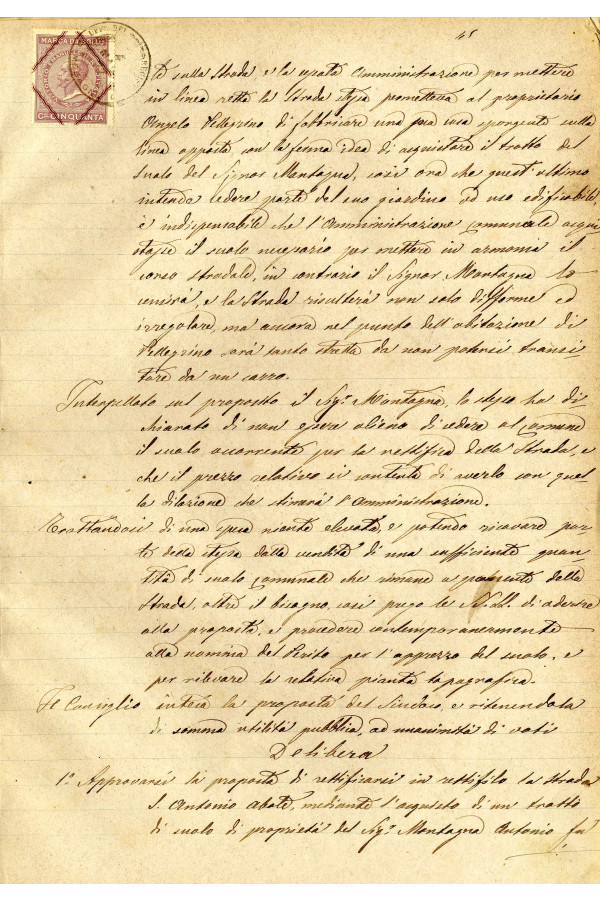 48
MARCA DA BOLLO
Cmi CINQUANTA
te sulla Strada, e la epata Amministrazione per mettere
in linea retta la Strada stessa permetteva al proprietario
Angelo Pellegrino di fabbricare una sua casa sporgente sulla
linea opposta con la ferma idea di acquistare il tratto del
suolo del Signor Montagna, così ora che quest'ultimo
intende cedere parte del suo giardino ad uso edificabile,
è indispensabile che l'Amministrazione Comunale acqui
stasse il suolo necessario per mettere in armonia il
corso stradale, in contrario il Signor Montagna lo
e la Strada risulterà non solo difforme ed
irregolare, ma ancora nel punto dell'abitazione di
Pellegrino sarà tanto stretta da non potersi transi
tare da un carro.
Interpellato sul proposito il Sigr. Montagna, lo stesso ha di
chiarato di non essere alieno di cedere al Comune
il suolo occorrente per la rettifica della Strada, e
che il prezzo relativo si contenta di averlo con quel
la dilazione che stimerà l'Amministrazione.
Trattandosi di una spesa niente elevata, e potendo ricavare par
te della stessa dalla vendita di una sufficiente quan
tità di suolo Comunale che rimane a della
Strada, oltre il bisogno, così prego le S.S. L.L. di aderire
alla proposta, e procedere contemporaneamente
alla nomina del Perito per l'apprezzo del suolo, e
per rilevare la relativa pianta topografica.
Il Consiglio intesa la proposta del Sindaco, e ritenendola
di somma utilità pubblica, ad unanimità di voti
Delibera
1º Approvarsi la proposta di rettificarsi in rettifilo la Strada
S. Antonio Abate, mediante l'acquisto di un tratto
di suolo di proprietà del Sigr. Montagna Antonio fu